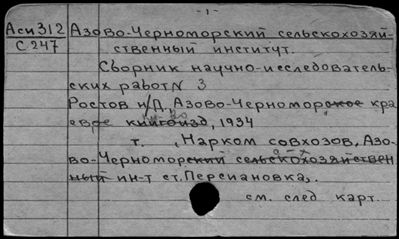 - 1 -
Аси312 Азово-Черноморский сельскохозяй-
С 247 ственный институт.
Сборник научно-исследователь-
ских работ N 3
Ростов н/Д, Азово-Черноморское кра
евое книгоизд, 1934
т. , Нарком совхозов, Азо-
во-Черноморский сельскохозяйствен
ный ин-т ст. Персиановка,.
см. след карт.